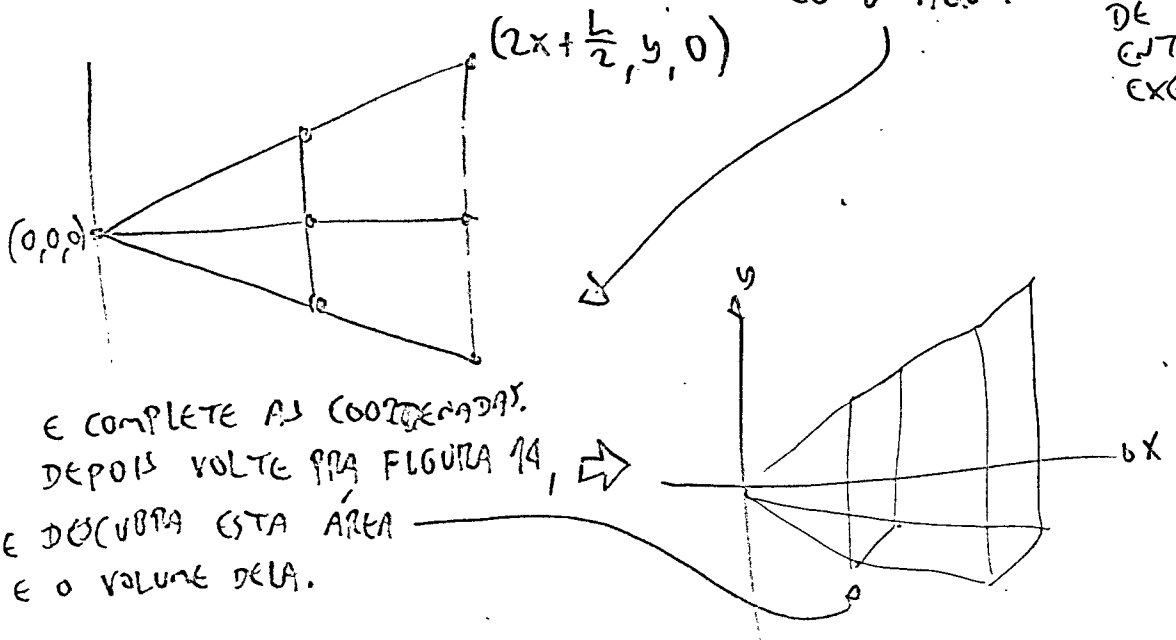 DE
(2x + L/2, y, 0)
(0,0,0)
y
X
E COMPLETE AS COORDENADAS.
DEPOIS VOLTE PRA FIGURA 14,
E DESCUBRA ESTA ÁREA
E O VOLUME DELA.